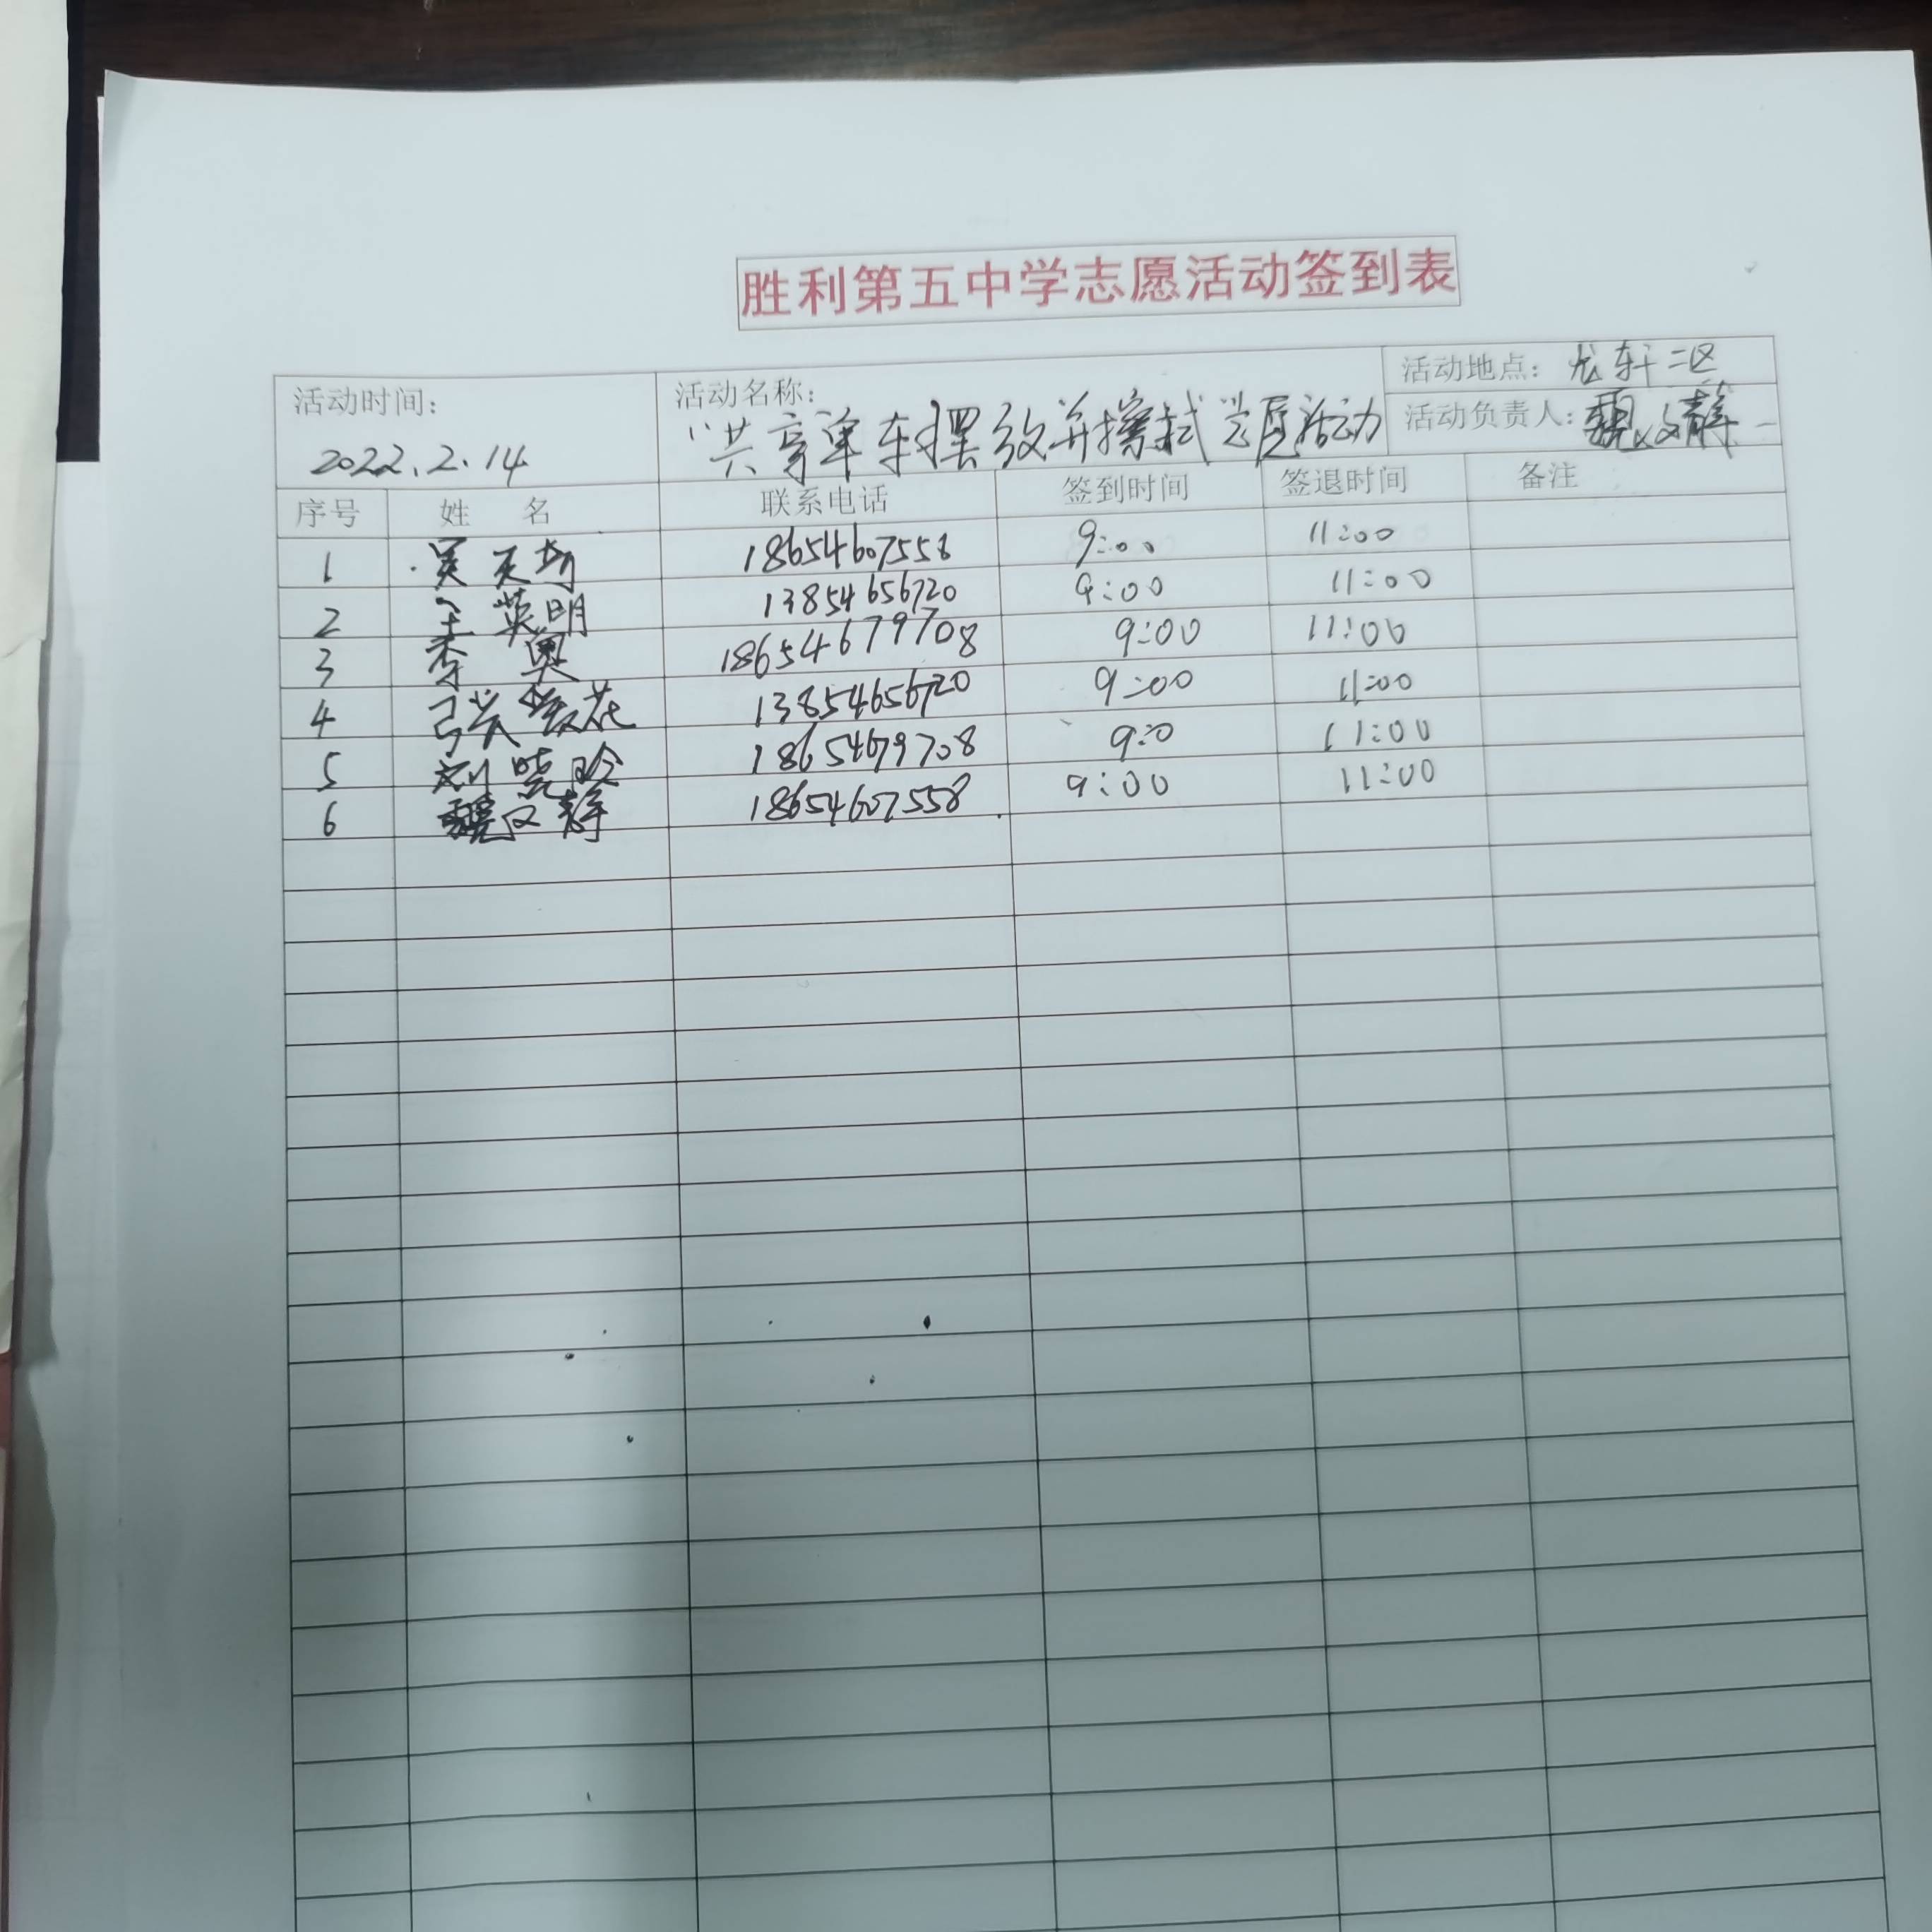 胜利第五中学志愿活动签到表
活动时间: 2022.2.14
活动名称: "共享单车摆放并擦拭志愿活动
活动地点: 龙轩二区
活动负责人: 魏文静
序号 姓 名 联系电话 签到时间 签退时间 备注
1 吴天 18654607558 9:00 11:00
2 王英明 13854656720 9:00 11:00
3 李奥 18654679708 9:00 11:00
4 花 13854656720 9:00 11:00
5 刘晓晗 18654679708 9:0 11:00
6 魏文静 18654607558 9:00 11:00